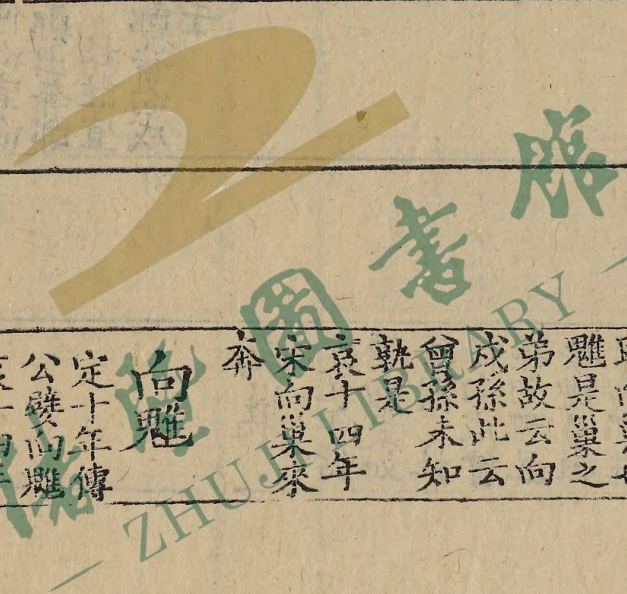 魋是巢之
弟故云向
戌孫此云
曾孫未知
孰是
哀十四年
宋向巢來
奔
向魋
定十年傳
公嬖向魋
書圖
ZHUJI LIBRARY